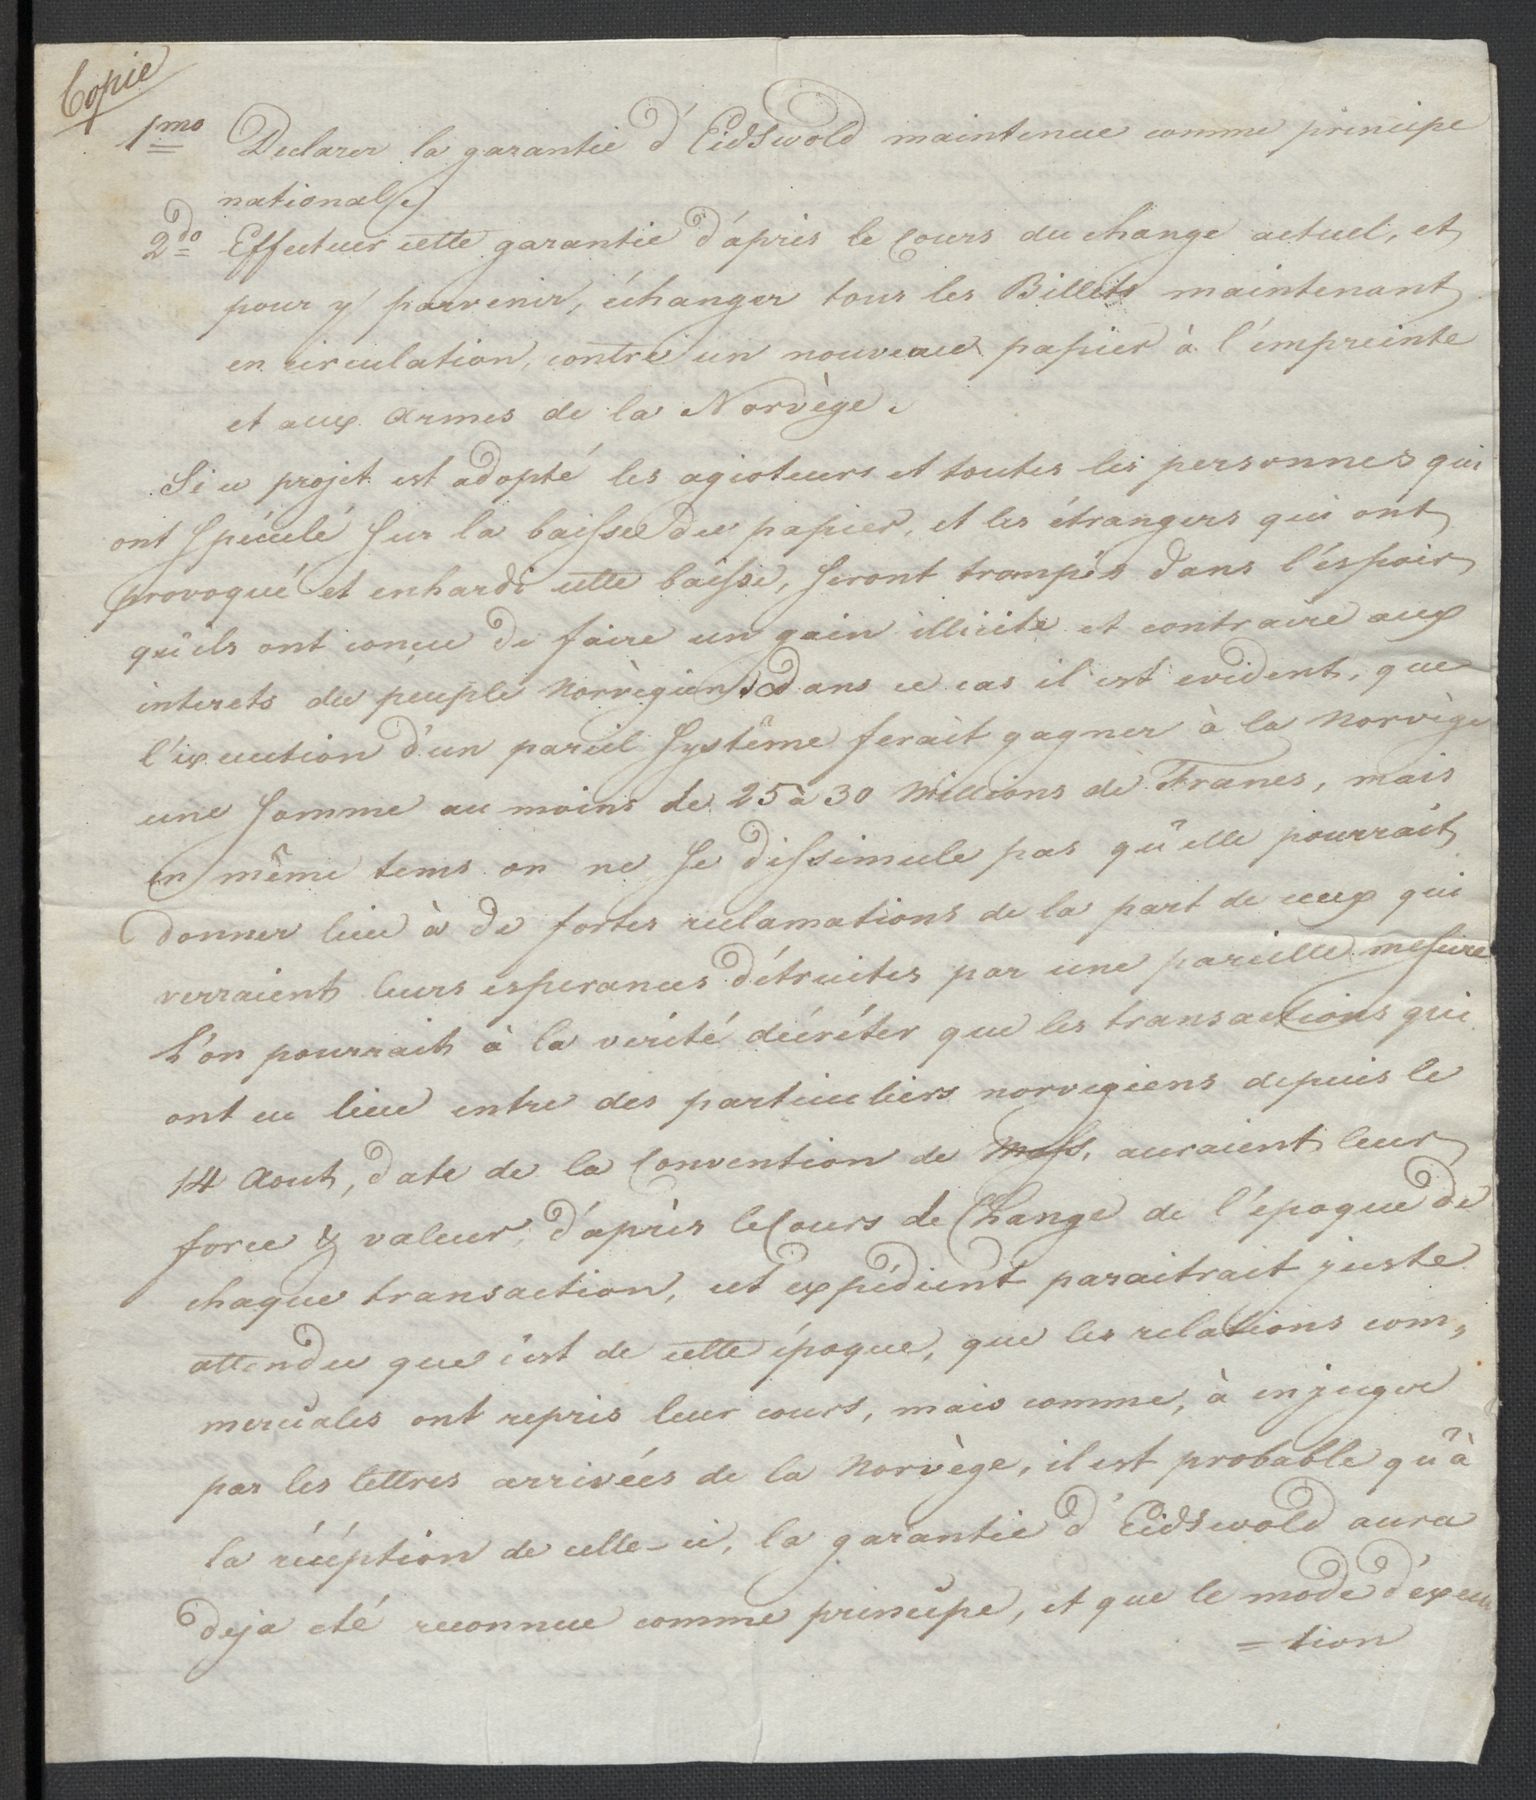 Copie
1mo Declarer la garantie d'Eidswold maintenue comme principe
national.
2do Effectuer cette garantie d'après le Cours du change actuel, et
pour y parvenir, échanger tous les Billets maintenant
en circulation, contre un nouveau papier à l'émpreinte
et aux Armes de la Norvège.
Si ce projet est adopté les agioteurs et toutes les personnes qui
ont spéculé sur la baisse du papier, et les étrangers qui ont
provoqué et enhardi cette baisse, seront trompés dans l'éspoir
qu'ils ont conçu de faire un gain illicite et contraire aux
interets du peuple Norvègien; dans ce cas il est evident, que
l'éxecution d'un pareil Système ferait gagner à la Norvège
une somme au moins de 25 à 30 Millions de Francs, mais
en même tems on ne se dissimule pas qu'elle pourrait
donner lieu à de fortes reclamations de la part de ceux qui
verraient leurs esperances détruites par une pareille mesure
L'on pourrait à la vérité décréter que les transactions qui
ont eu lieu entre des particuliers norvegiens depuis le
14 Aout, date de la Convention de Moss, auraient leur
force & valeur, d'après le Cours de Change de l'époque de
chaque transaction, cet expédient paraitrait juste
attendu que c'est de cette époque, que les relations com,
merciales ont repris leur cours, mais comme, à en juger
par les lettres arrivées de la Norvège, il est probable qu'à
la récéption de celle-ci, la garantie d'Eidswold aura
deja été reconnue comme principe, et que le mode d'éxecu
= tion